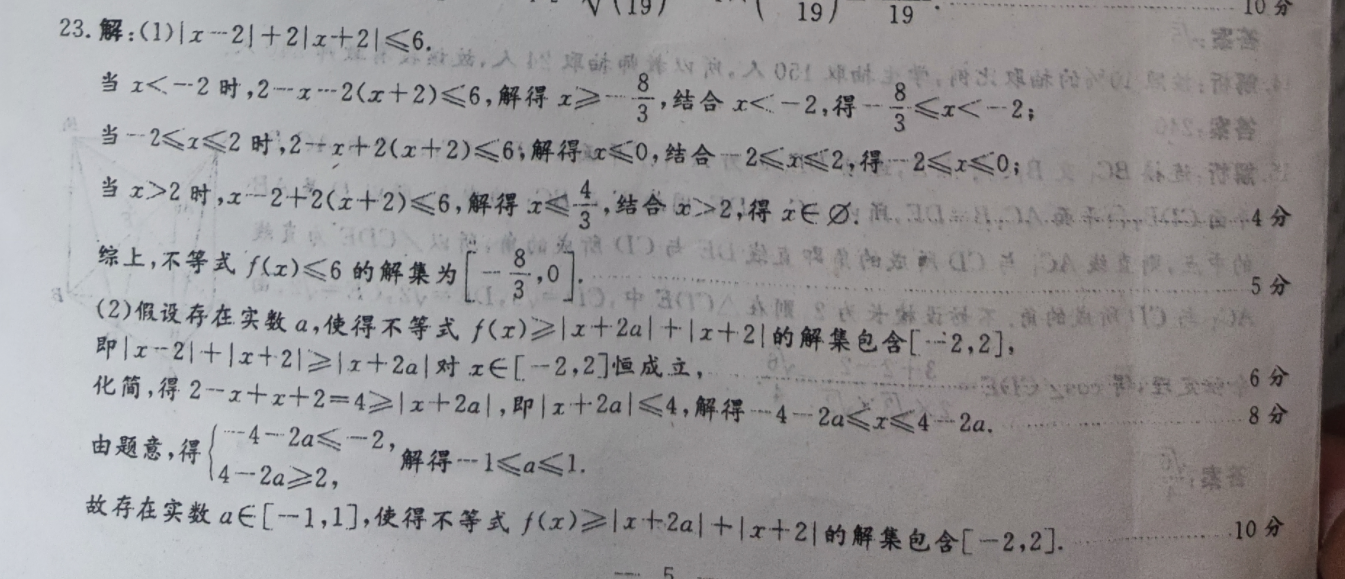 10 分
23. 解:(1)|x-2|+2|x+2|≤6.
当 x<-2 时,2-x-2(x+2)≤6,解得 x≥-8/3,结合 x<-2,得-8/3≤x<-2;
当-2≤x≤2 时,2-x+2(x+2)≤6,解得 x≤0,结合-2≤x≤2,得-2≤x≤0;
当 x>2 时,x-2+2(x+2)≤6,解得 x≤4/3,结合 x>2,得 x∈∅. 4 分
综上,不等式 f(x)≤6 的解集为[-8/3,0]. 5 分
(2)假设存在实数 a,使得不等式 f(x)≥|x+2a|+|x+2|的解集包含[-2,2],
即|x-2|+|x+2|≥|x+2a|对 x∈[-2,2]恒成立, 6 分
化简,得 2-x+x+2=4≥|x+2a|,即|x+2a|≤4,解得-4-2a≤x≤4-2a. 8 分
由题意,得{-4-2a≤-2, 4-2a≥2, 解得-1≤a≤1.
故存在实数 a∈[-1,1],使得不等式 f(x)≥|x+2a|+|x+2|的解集包含[-2,2]. 10 分
— 5 —